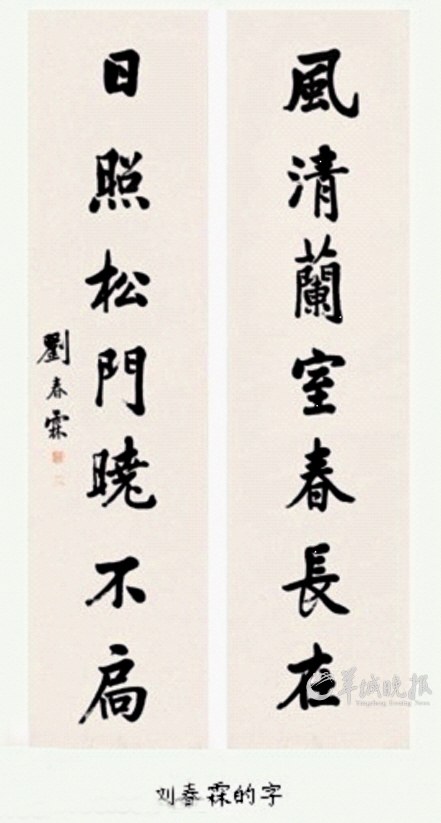 風清蘭室春長在
日照松門曉不扃
劉春霖
羊城晚报
Yangcheng Evening News
刘春霖的字